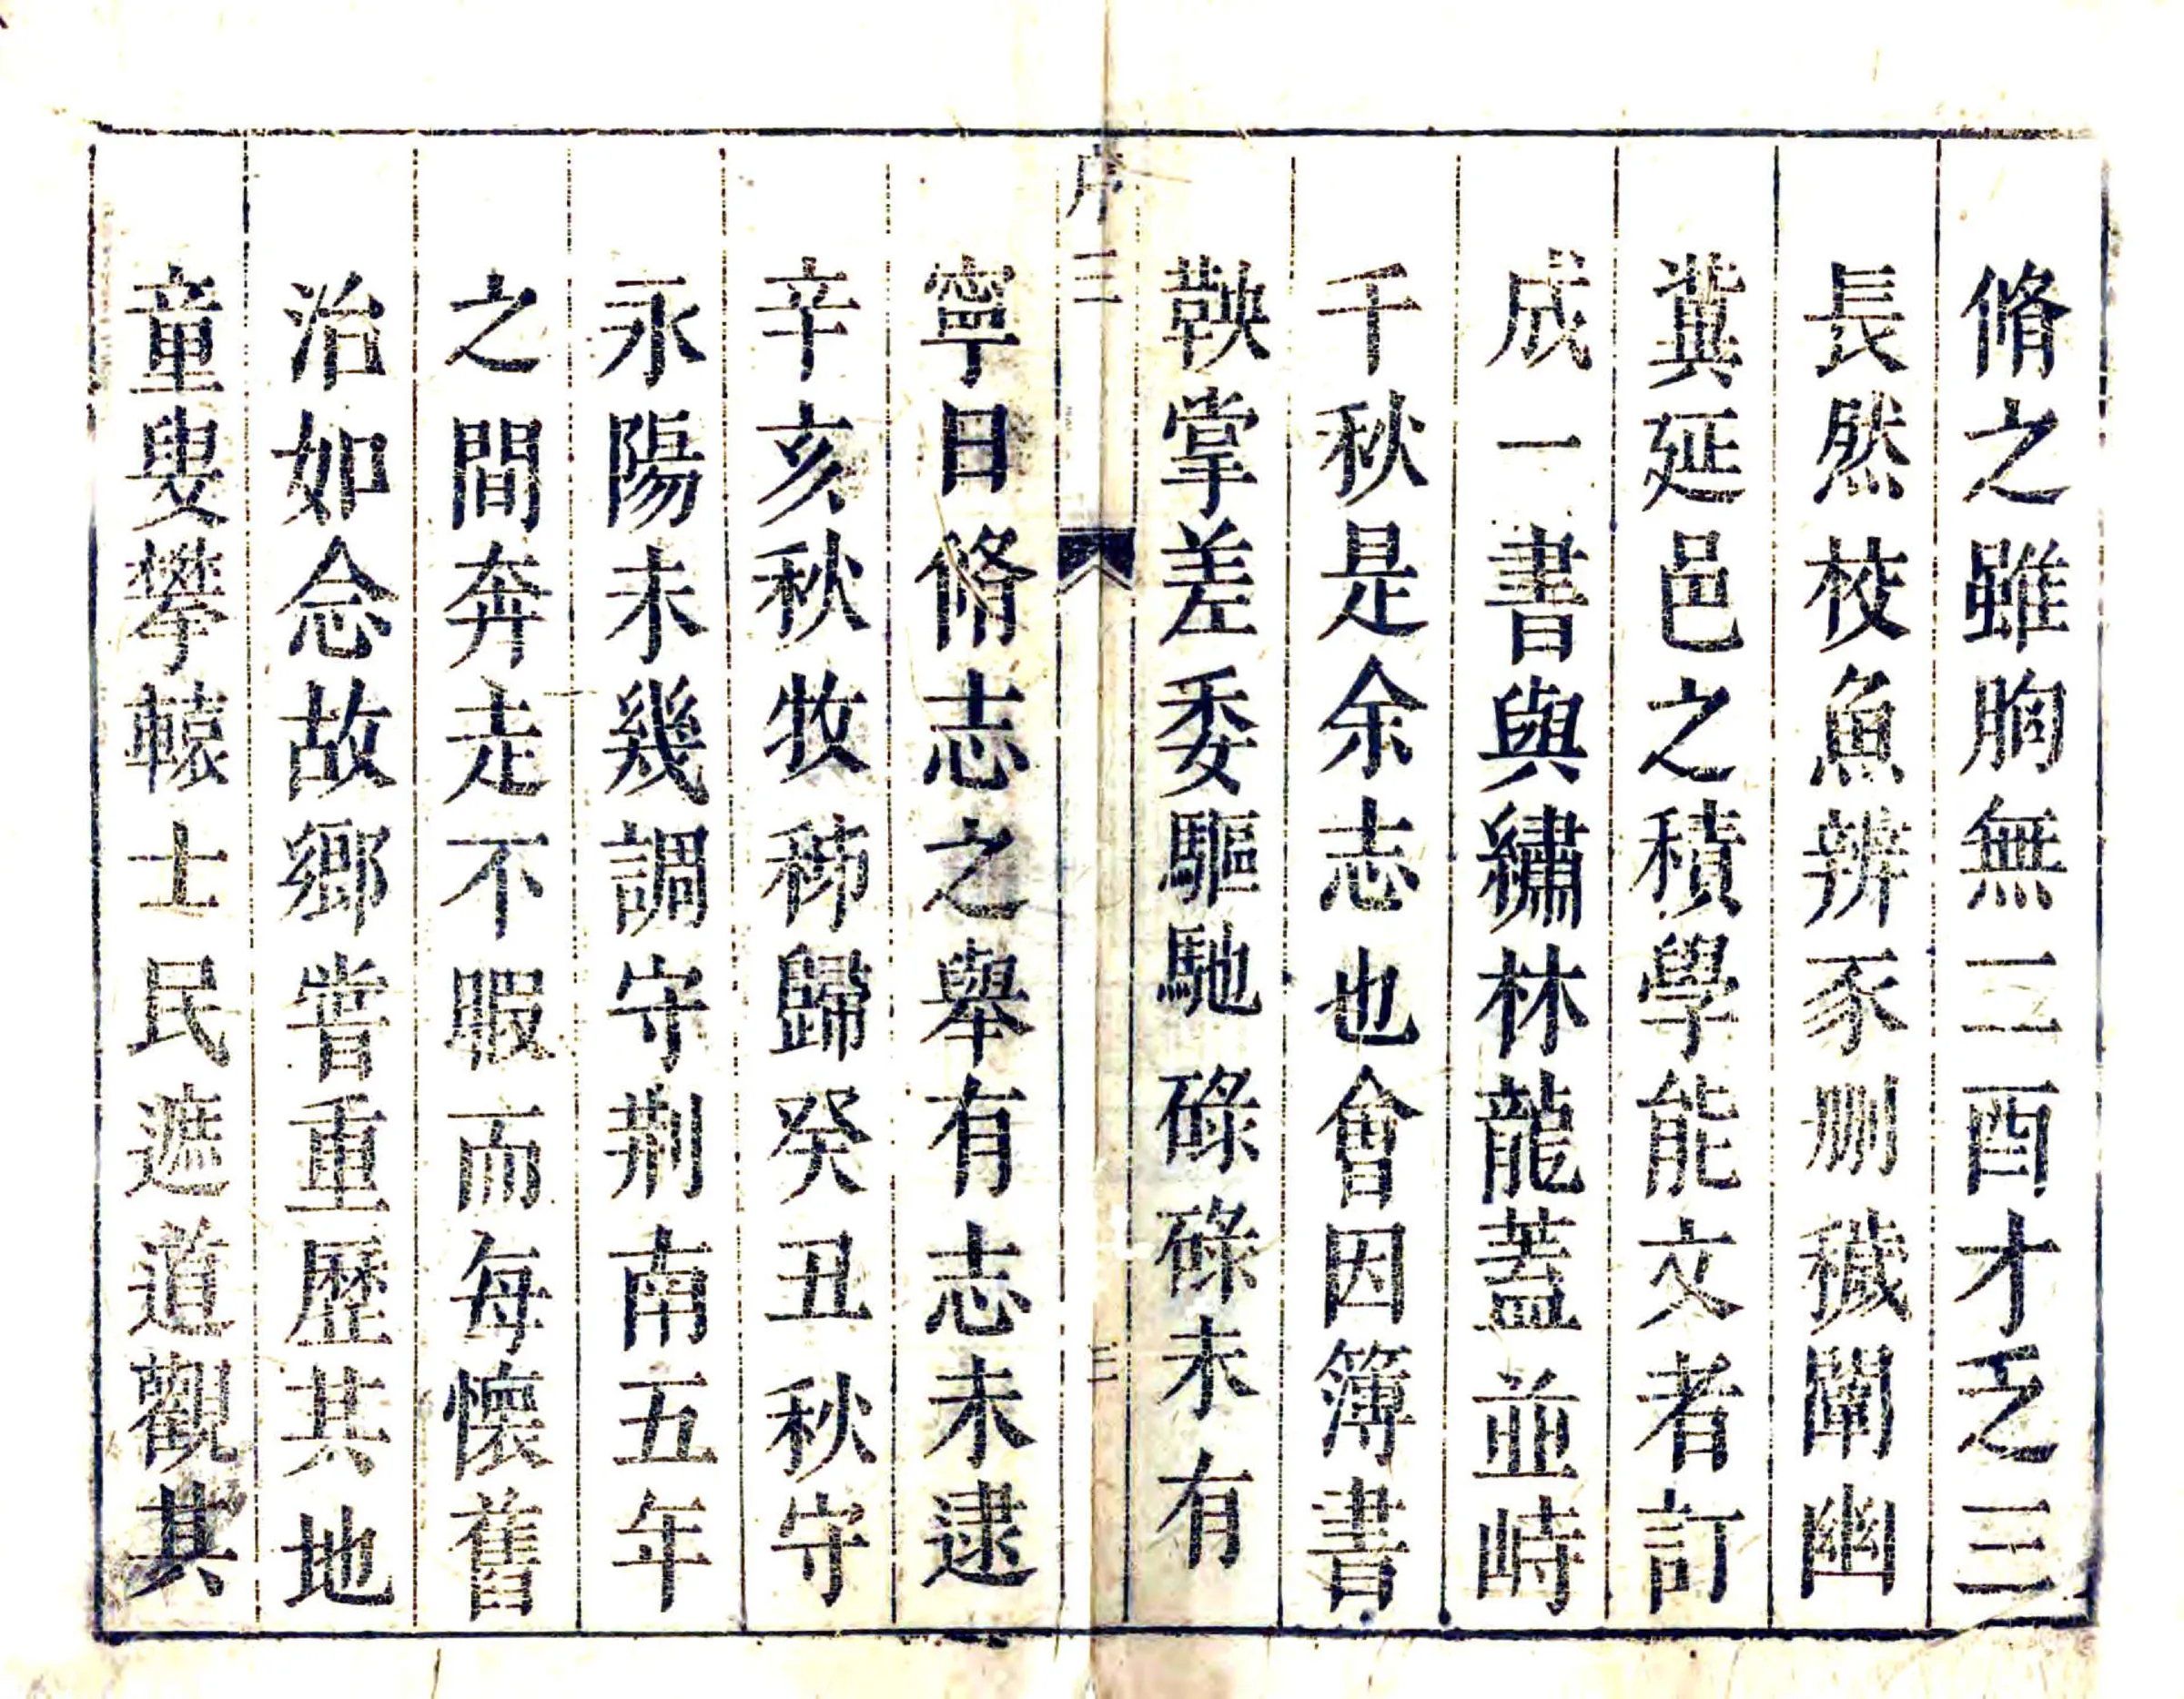 脩之雖胸無二酉才乏三
長然校魚辨豕刪穢闡幽
兾延邑之積學能文者訂
成一書與繡林龍蓋並峙
千秋是余志也會因簿書
鞅掌差委驅馳碌碌未有
序三
三
寧日脩志之舉有志未逮
辛亥秋牧秭歸癸丑秋守
永陽未幾調守荆南五年
之間奔走不暇而每懷舊
治如念故鄉嘗重歷其地
童叟攀轅士民遮道觀其